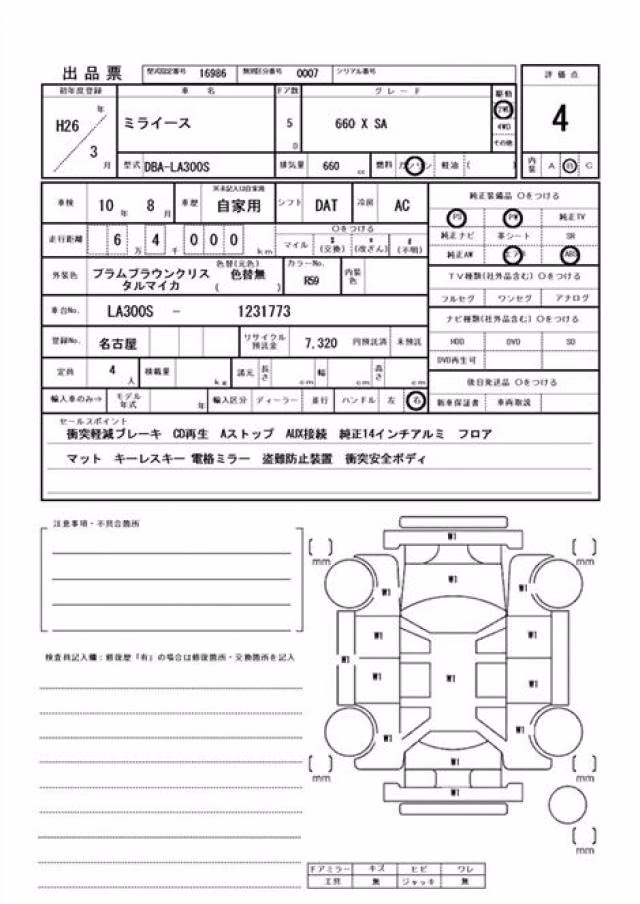 出品票 型式指定番号 16986 類別区分番号 0007 シリアル番号
評価点
初年度登録 車名 ドア数 グレード 駆動
H26 年 ミライース 5 D 660 X SA 2WD 4
3 月 4WD
その他
型式 DBA-LA300S 排気量 660 cc 燃料 ガソリン 軽油 ( ) 内装 A B C
車検 10年 8月 車歴 ※未記入は自家用 自家用 シフト DAT 冷房 AC
純正装備品 ○をつける
PS PW 純正TV
走行距離 6万 4千 000 km ○をつける
マイル $(交換) *(改ざん) #(不明)
純正ナビ 革シート SR
純正AW エアB ABS
外装色 プラムブラウンクリスタルマイカ 色替(元色) 色替無 ( ) カラーNo. R59 内装色
TV種類(社外品含む) ○をつける
フルセグ ワンセグ アナログ
車台No. LA300S - 1231773
ナビ種類(社外品含む) ○をつける
登録No. 名古屋 リサイクル預託金 7,320 円預託済 未預託
HDD DVD SD
DVD再生可
定員 4人 積載量 kg 諸元 長さ cm 幅 cm 高さ cm
後日発送品 ○をつける
輸入車のみ⇒ モデル年式 年 輸入区分 ディーラー 並行 ハンドル 左 右
新車保証書 車両取説
セールスポイント
衝突軽減ブレーキ CD再生 Aストップ AUX接続 純正14インチアルミ フロア
マット キーレスキー 電格ミラー 盗難防止装置 衝突安全ボディ
注意事項・不具合箇所
検査員記入欄:修復歴「有」の場合は修復箇所・交換箇所を記入
W1
[ ] mm [ ] mm
W1
W1 W1
W1 W1
W1
W1 W1 W1
W1 W1
W1
[ ] mm [ ] mm
W1
[ ] mm
ドアミラー キズ ヒビ ワレ
工具 無 ジャッキ 無